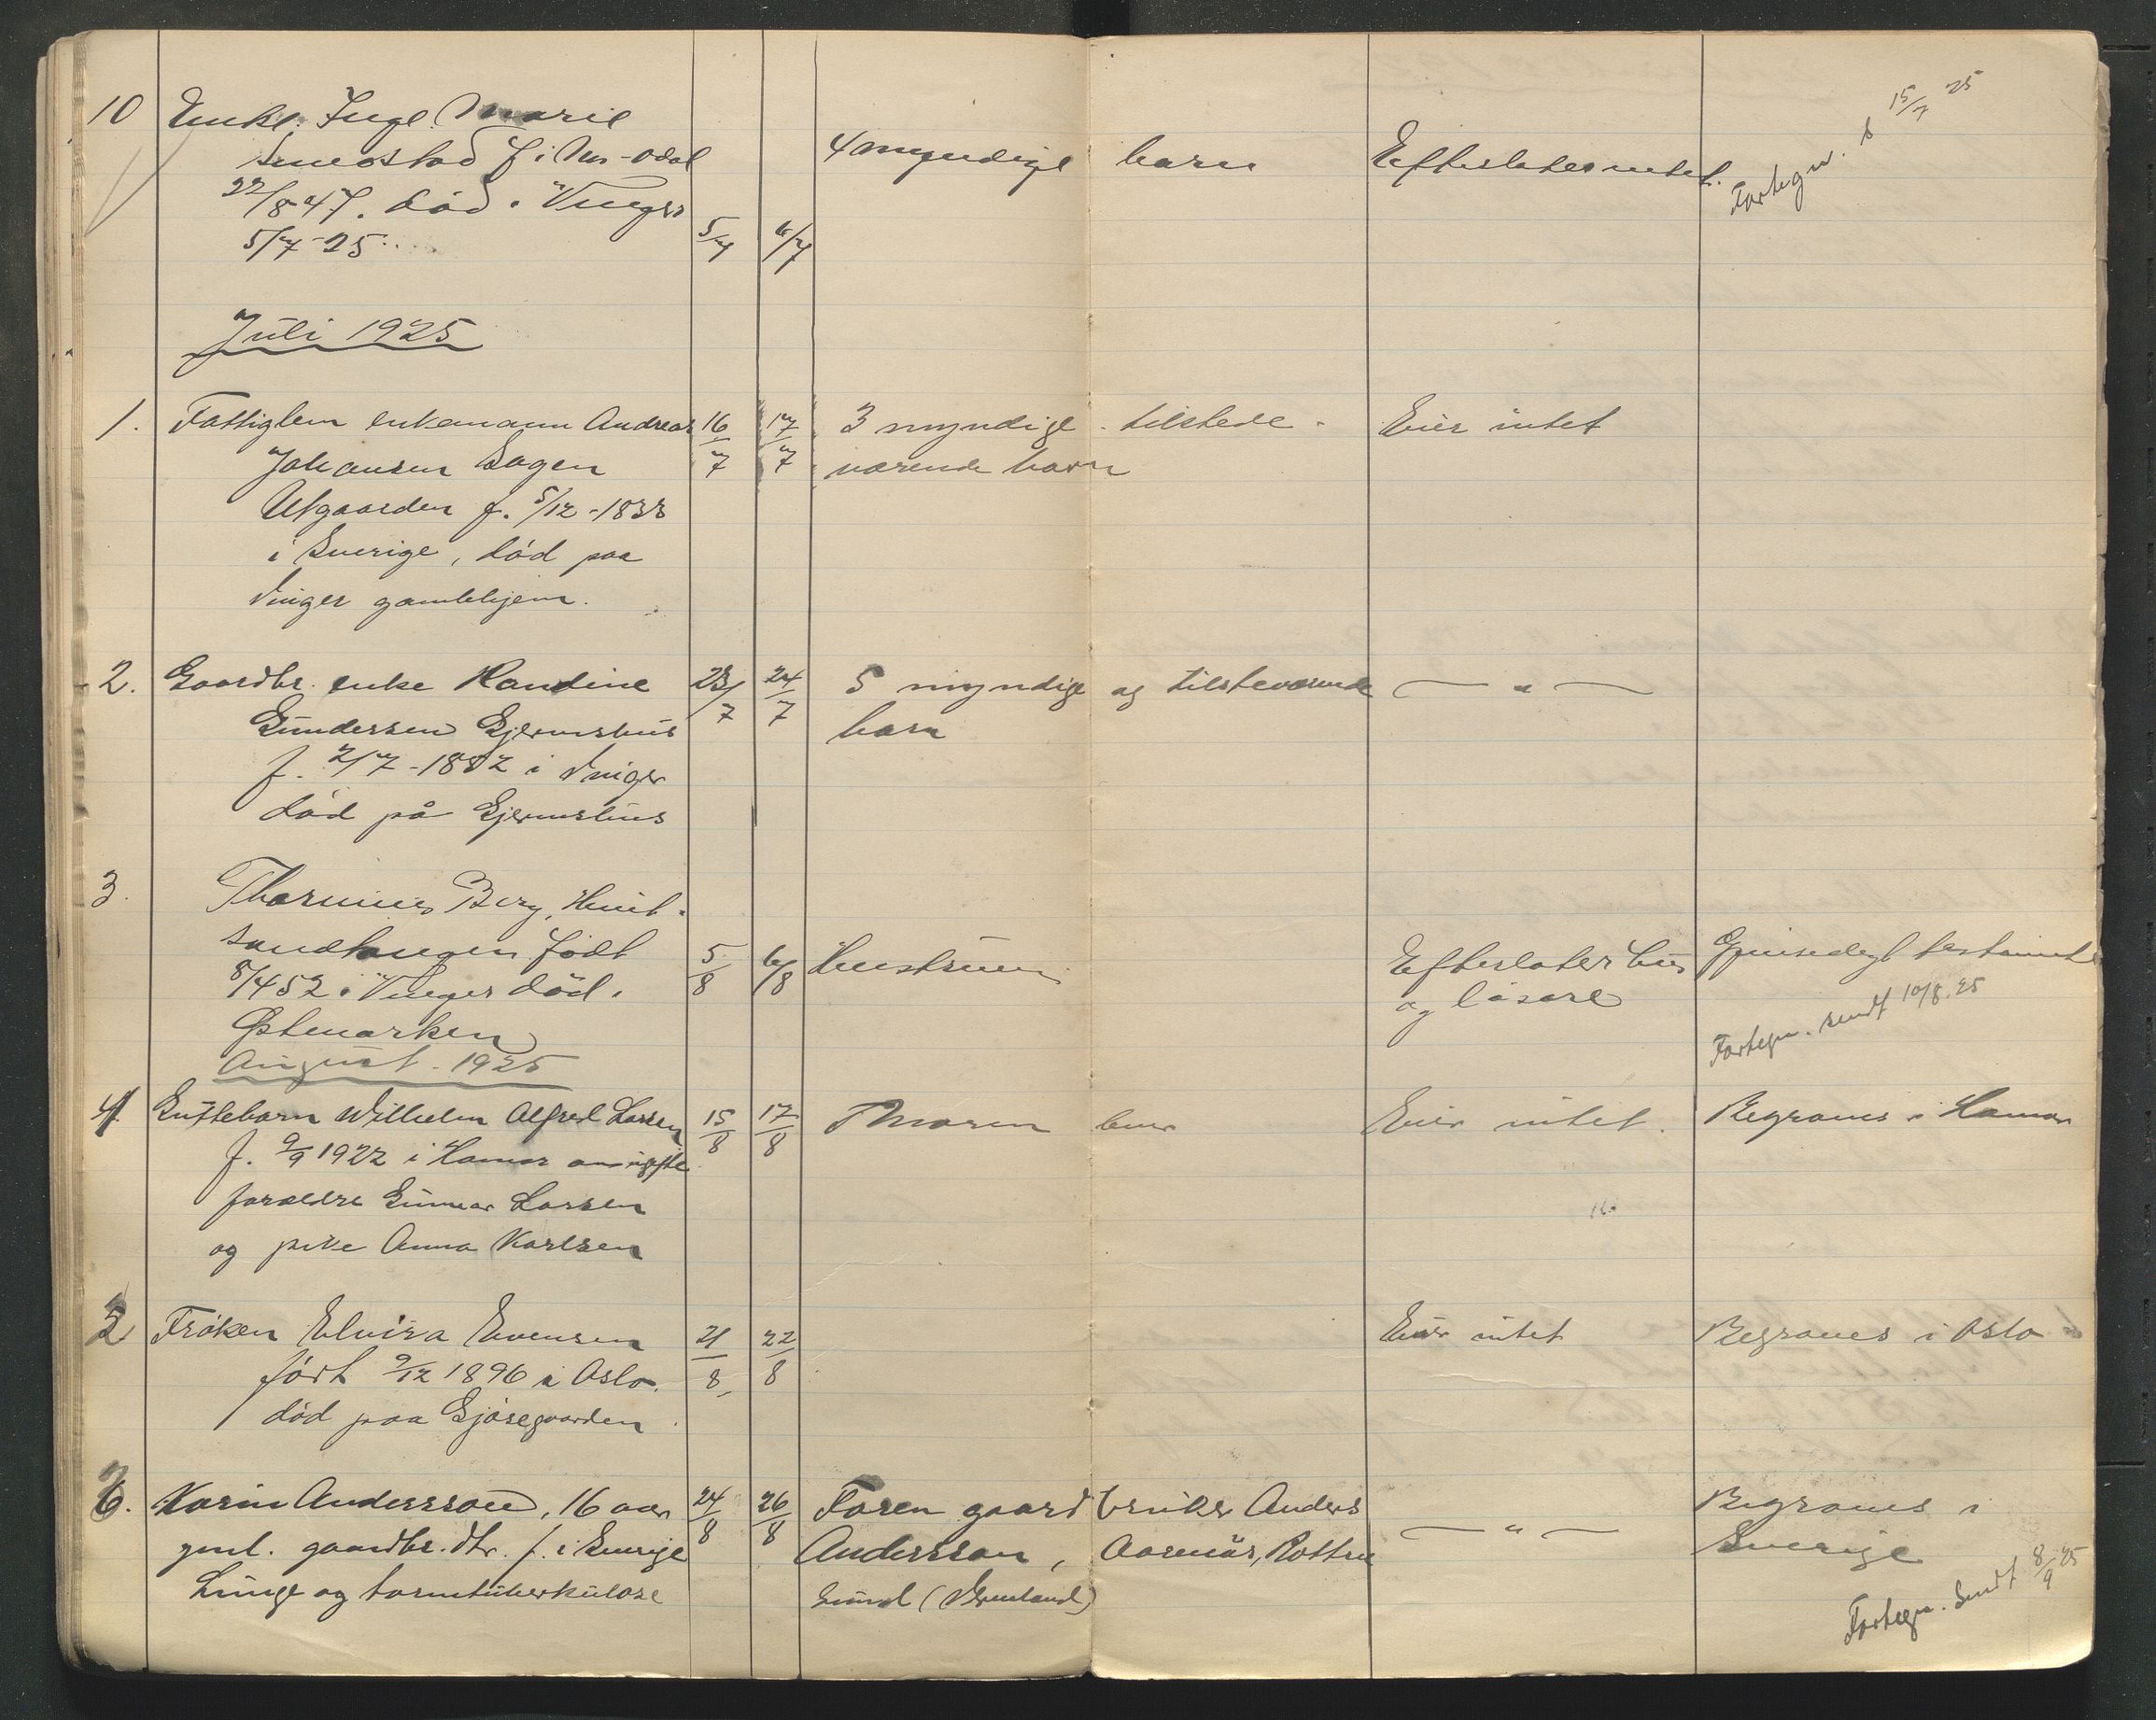 10 Enke. Inge. Marie
Smedstad f i Nes-Odal
22/8 47. død i Vinger
5/7 25. 5/7 6/7
4 myndige barn
Efterlater intet.
Fortegn. s 15/7 25
Juli 1925
1. Fattiglem enkemann Andreas 16/7 17/7 3 myndige tilstede- Eier intet
Johansen Sagen værende barn
Utgaarden f. 5/12-1833
i Sverige, død paa
Vinger gamlehjem.
2. Gaardbr. enke Randine 23/7 24/7 5 myndige og tilsteværende — " —
Gundersen Gjermshus barn
f. 2/7-1882 i Vinger
død på Gjermshus
3. Berg,
født 5/8 6/8 Hustruen Efterlater hus Gjensidigt testamente
8/4 52 i Vinger død i og løsøre
Østmarken Fortegn. sendt 10/8.25
August. 1925
4. Gutebarn Wilhelm Alfred Larsen 15/8 17/8 Moren bur Eier intet. Begraves i Hamar
f. 9/9 1922 i Hamar av ugifte
foreldre Gunnar Larsen
og pike Anna Karlsen
5 Frøken Elvira Evensen 21/8 22/8 Eier intet Begraves i Oslo
født 9/12 1896 i Oslo.
død paa Gjøsegaarden.
6. Karin Andersson, 16 aar 24/8 26/8 Faren gaardbruker Anders — " — Begraves i
gml. gaardbr. dtr. f. i Sverige Andersson, Aarnäs, Rottne Sverige
Lunge og tarmtuberkulose Sund (Vermland)
Fortegn. sendt 8/9 25